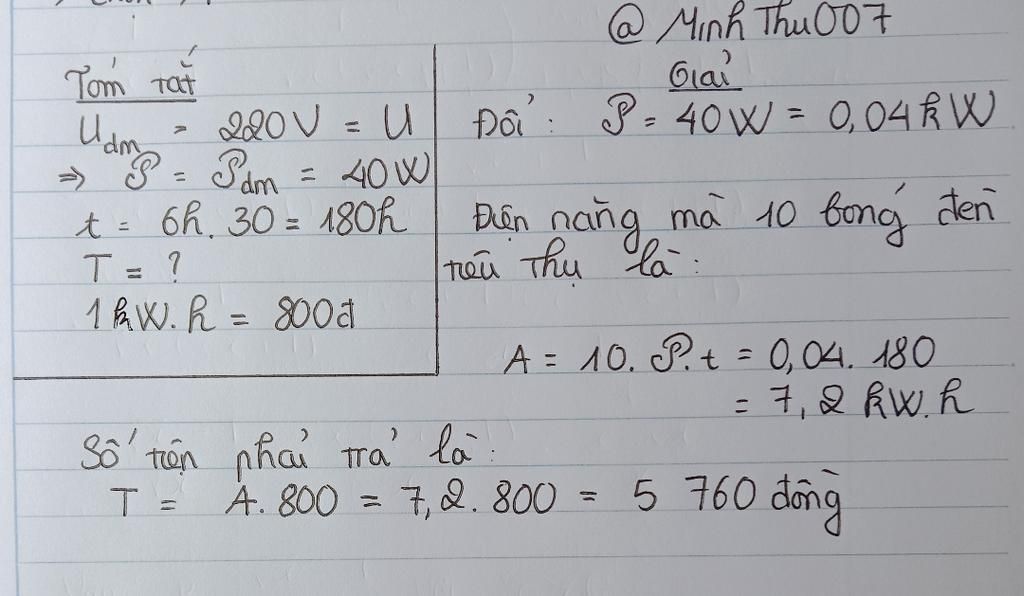 @ MinhThu007
Tóm tắt
Uđm = 220V = U
=> P = Pđm = 40W
t = 6h. 30 = 180h
T = ?
1 kW.h = 800đ
Giải
Đổi: P = 40W = 0,04kW
Điện năng mà 10 bóng đèn
tiêu thụ là:
A = 10. P. t = 0,04. 180
= 7,2 kW.h
Số tiền phải trả là:
T = A. 800 = 7,2. 800 = 5 760 đồng